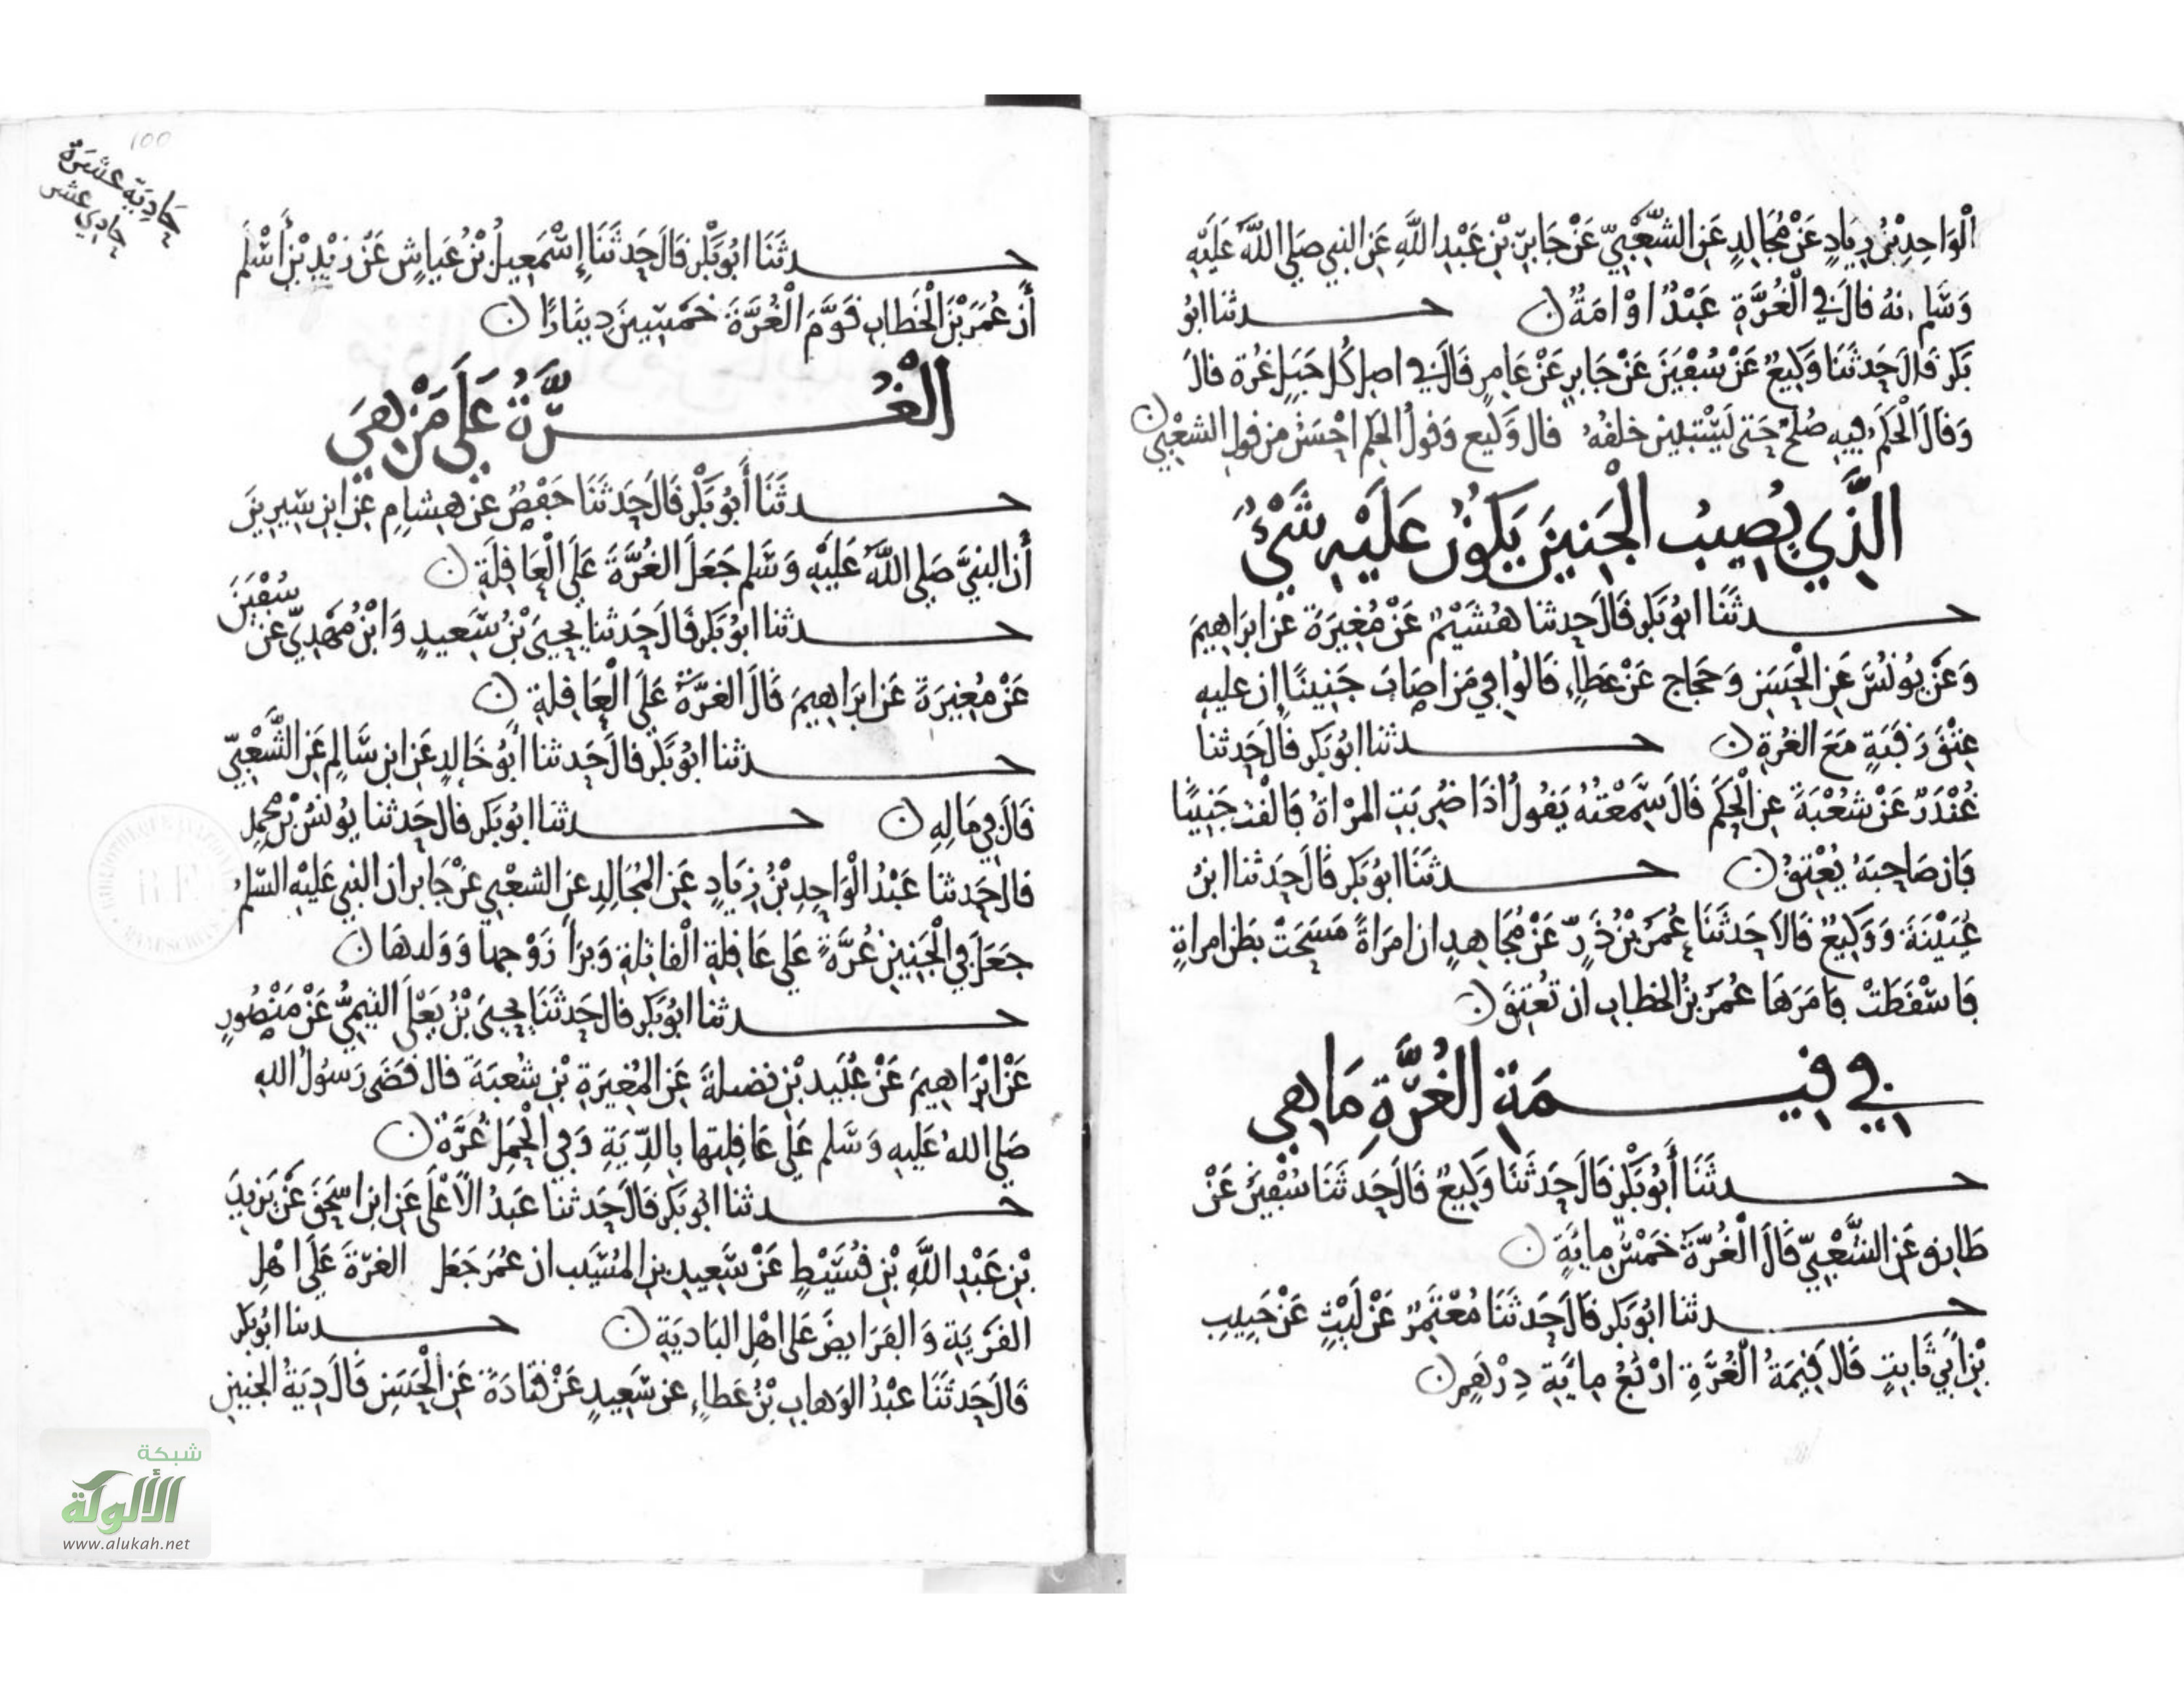 الْوَاحِدِ بْنُ زِيَادٍ عَنْ مُجَالِدٍ عَنِ الشَّعْبِيِّ عَنْ جَابِرِ بْنِ عَبْدِ اللَّهِ عَنِ النبي صَلى اللَّهُ عَلَيْهِ
وَسَلم انهُ قالَ في الْغُرَّةِ عَبْدٌ اوْ امَةٌ ن حـدثنا ابُو
بَكر قَالَ حَدثَنَا وَكِيعٌ عَنْ سُفْيَنَ عَنْ جَابِرٍ عَنْ عَامِرٍ قَالَ في اصل كُل حَبَلٍ غُرة قالَ
وَقَالَ الْحَكَمُ فِيهِ صُلْحٌ حَتى يَسْتَبِينَ خلقُهُ قال وَكيع وَقولُ الحكم احْسَنُ من قولِ الشعْبي ن
الَّذِي يُصِيبُ الْجَنِينَ يَكُونُ عَلَيْهِ شَيْءٌ
حـدثَنَا ابُو بَكر قَالَ حَدثنا هُشَيْمٌ عَنْ مُغِيرَةَ عَنْ ابرَاهِيمَ
وَعَنْ يُونُسَ عَنِ الْحَسَنِ وَحَجاج عَنْ عَطاءٍ قَالُوا في مَنْ اصَابَ جَنِينًا ان عليهِ
عِتْقَ رَقَبَةٍ مَعَ الغُرةِ ن حـدثنا ابُو بَكر قالَ حَدثنا
غُنْدَرٌ عَنْ شعْبَةَ عنِ الْحكَمِ قَالَ سَمعْتهُ يَقولُ اذَا ضُربَتِ المرْاةُ فَالْقت جَنِينًا
فَان صَاحِبَهُ يُعْتِقُ ن حـدثَنَا ابُو بَكر قَالَ حَدثنا ابنُ
عُيَيْنَةَ وَوَكِيعٌ قَالاَ حَدثَنَا عُمَرُ بْنُ ذَرٍّ عَنْ مُجَاهِدٍ ان امرَاةً مَسَحَتْ بطن امراةٍ
فَاسْقَطَتْ فَامَرَهَا عُمَرُ بْنُ الخطابِ ان تعْتِقَ ن
في قيـمَةِ الغُرَّةِ مَا هِي
حـدثَنَا أَبُو بَكْر قَالَ حَدثَنَا وَكِيعٌ قَالَ حَدثَنَا سُفْيَنُ عَنْ
طَارِقٍ عَنِ الشَّعْبِيِّ قَالَ الْغُرَّةُ خَمْسُ مِايَةٍ ن
حـدثنا ابُو بَكر قَالَ حَدثَنَا مُعْتَمِرٌ عَنْ لَيْثٍ عَنْ حَبِيبِ
بْنِ أَبي ثَابِتٍ قَالَ قِيمَةُ الْغُرَّةِ ارْبَعُ مِايَةِ دِرْهَمٍ ن
حَادِيَة عشَرَة
حادي عشر
100
حـدثَنَا ابُو بَكْر قَالَ حَدثَنَا إسْمَعِيلُ بْنُ عَيَّاشٍ عَنْ زيْدِ بْنِ أَسْلَم
أَن عُمَرَ بْنَ الْخَطابِ قَوَّمَ الْغُرَّةَ خَمْسِينَ دِينَارًا ن
الْغُـرَّةُ عَلَى مَنْ هِيَ
حـدثَنَا أَبُو بَكْر قَالَ حَدثَنَا حَفْصٌ عَنْ هِشَامٍ عَنِ ابْنِ سِيرِينَ
أَن النبيَّ صَلى اللَّهُ عَلَيْهِ وَسَلم جَعَلَ الغُرَّةَ عَلَى الْعَاقِلَةِ ن
حـدثنا ابُو بَكر قَالَ حَدثنا يَحْيَى بْنُ سَعيدٍ وَابْنُ مَهْدِيّ عَن سُفْيَنَ
عَنْ مُغِيرَةَ عَن ابرَاهِيمَ قَالَ الغرَّةُ عَلَى الْعَاقلةِ ن
حـدثنا ابُو بَكْر قالَ حَدثنا أبُو خَالدٍ عَنِ ابن سَالمٍ عَنِ الشَّعْبِيّ
قَالَ في مَالهِ ن حـدثنا ابُو بَكر قالَ حَدثنا يُونُسُ بْنُ محمد
قالَ حَدثنا عَبْدُ الْوَاحِدِ بْنُ زِيَادٍ عَنِ المُجَالِدِ عن الشعْبي عَنْ جَابر ان النبي عَلَيْهِ السَّلم
جَعَلَ في الْجَنِين غُرَّةً عَلَى عَاقِلةِ الْقاتِلةِ وَبرَأَ زَوْجها وَوَلدهَا ن
حـدثنا ابُو بَكر قالَ حَدثَنَا يَحْيَى بْنُ يَعْلَى التيمِيُّ عَنْ مَنْصُورٍ
عَنْ ابْرَاهِيمَ عَنْ عُبَيد بْنِ نضيلةَ عَنِ المُغِيرَةِ بْنِ شُعبَةَ قال قضَى رَسُولُ اللهِ
صَلى اللهُ عَلَيهِ وَسَلم عَلَى عَاقِلتِها بِالدِّيَةِ وَفي الْحَمل غُرَّةٌ ن
حـدثنا ابُو بَكر قَالَ حَدثنا عَبدُ الأَعْلَى عَنِ ابن اسحَقَ عَنْ يَزيدَ
بْنِ عَبْدِ اللَّهِ بْنِ قُسَيْطٍ عَنْ سَعِيدِ بن المُسَيّب ان عُمَرَ جَعَل الغرّةَ عَلَى اهْلِ
القَرْيَةِ وَالفَرَايضَ عَلَى اهْلِ البَاديَةِ ن حـدثنا ابُو بَكر
قَالَ حَدثَنَا عبْدُ الوَهابِ بْنُ عَطاءٍ عن سَعِيدٍ عَنْ قتادَةَ عَنِ الْحَسَنِ قَالَ دِيَةُ الجنينِ
شبكة
الألوكة
www.alukah.net